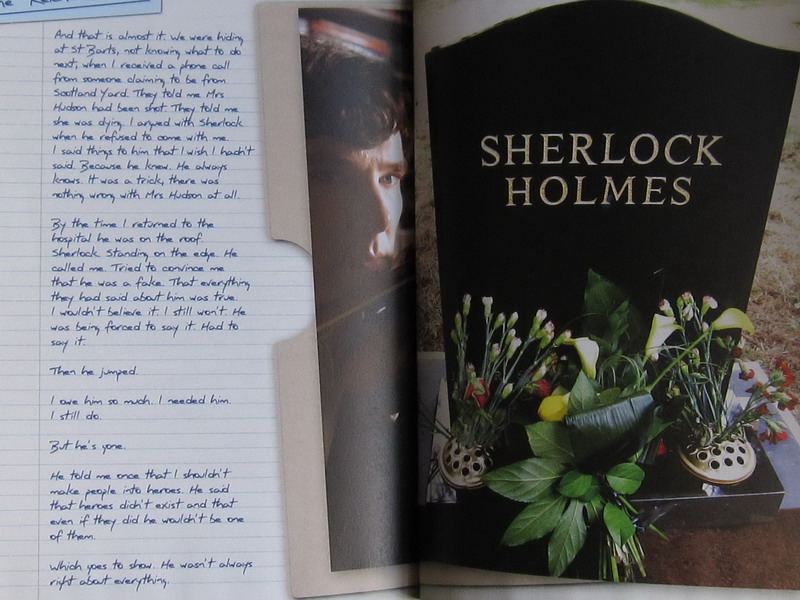 And that is almost it. We were hiding
at St Barts, not knowing what to do
next, when I received a phone call
from someone claiming to be from
Scotland Yard. They told me Mrs
Hudson had been shot. They told me
she was dying. I argued with Sherlock
when he refused to come with me.
I said things to him that I wish I hadn't
said. Because he knew. He always
knows. It was a trick, there was
nothing wrong with Mrs Hudson at all.
By the time I returned to the
hospital he was on the roof.
Sherlock. Standing on the edge. He
called me. Tried to convince me
that he was a fake. That everything
they had said about him was true.
I wouldn't believe it. I still won't. He
was being forced to say it. Had to
say it.
Then he jumped.
I owe him so much. I needed him.
I still do.
But he's gone.
He told me once that I shouldn't
make people into heroes. He said
that heroes didn't exist and that
even if they did he wouldn't be one
of them.
Which goes to show. He wasn't always
right about everything.
SHERLOCK
HOLMES